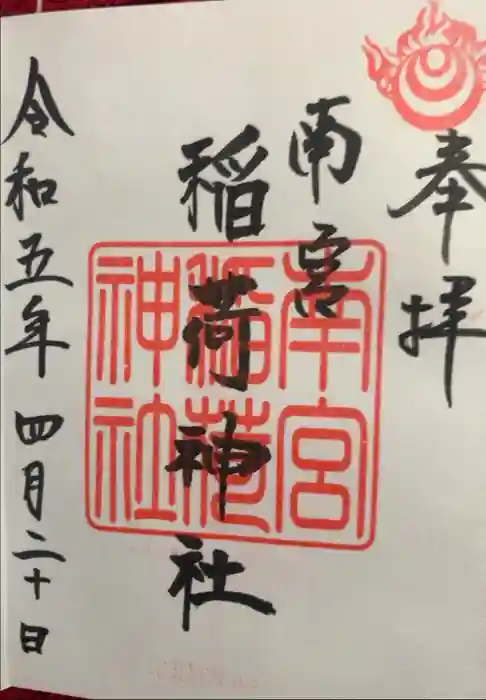 奉拝
南宮
稲荷神社
南宮
稲荷
神社
令和五年四月二十日